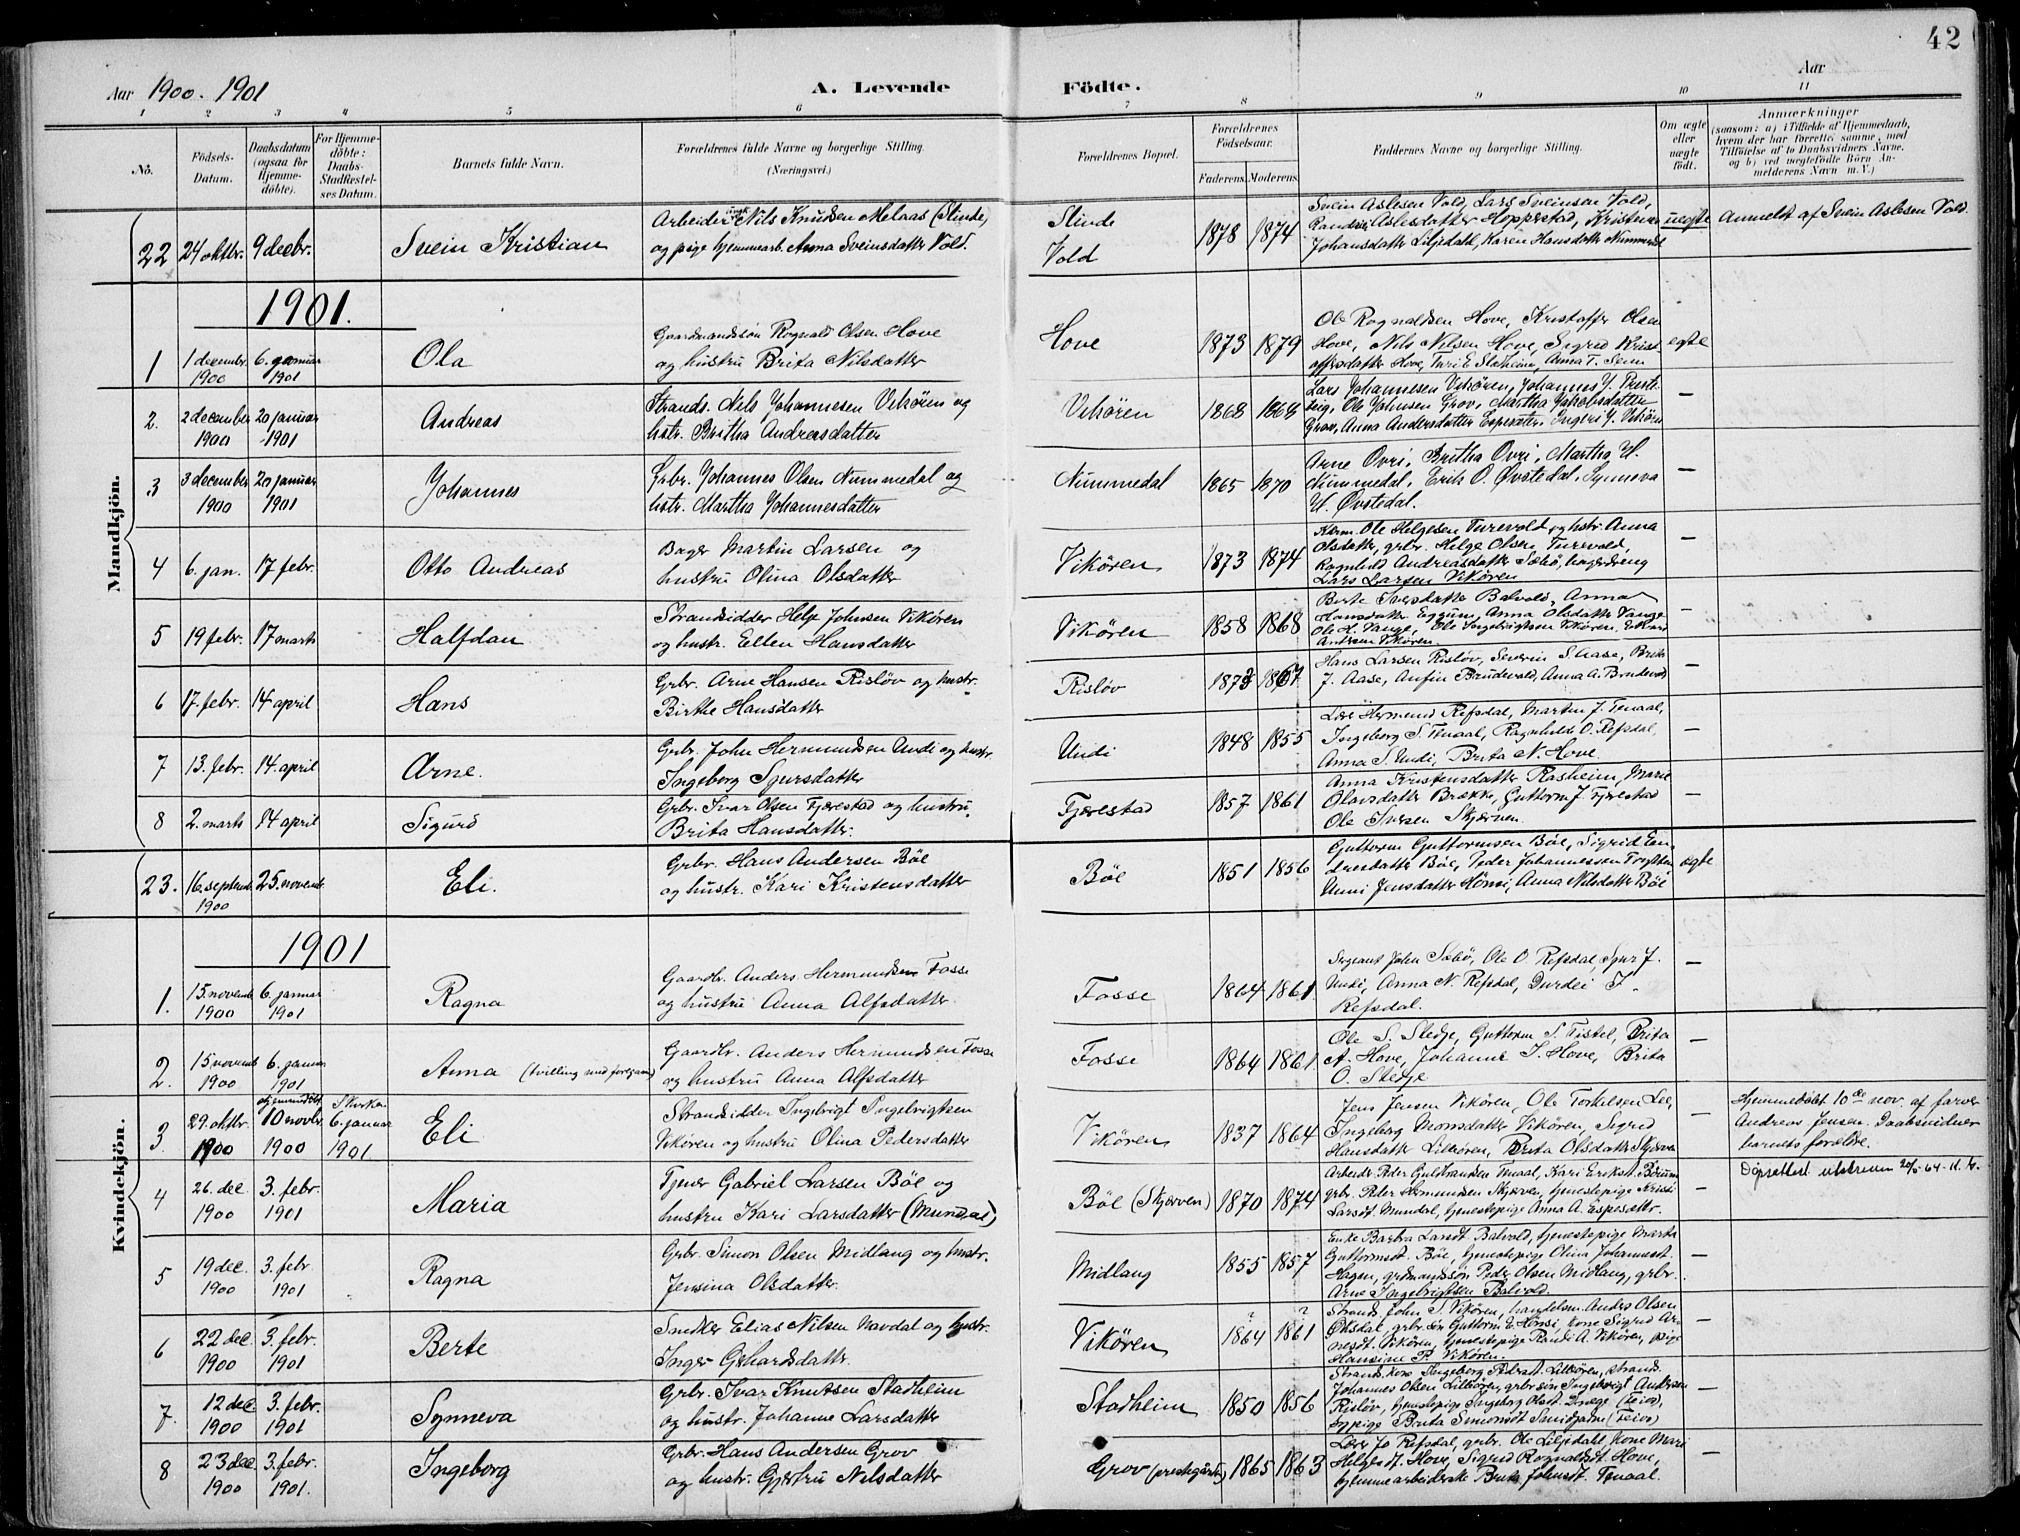 42
Aar 1900. 1901
A. Levende Födte.
Aar
1 2 3 4 5 6 7 8 9 10 11
No.
Födsels-Datum.
Daabsdatum (ogsaa for Hjemme-döbte).
For Hjemme-döbte: Daabs-Stadfæstelses Datum.
Barnets fulde Navn.
Forældrenes fulde Navne og borgerlige Stilling. (Næringsvei.)
Forældrenes Bopæl.
Forældrenes Födselsaar. Faderens. Moderens.
Faddernes Navne og borgerlige Stilling.
Om ægte eller uægte födt.
Anmærkninger (saasom: a) i Tilfælde af Hjemmedaab, hvem der har forrettet samme, med Tilföielse af to Daabsvidners Navne, og b) ved uægtefödte Börn Anmelderens Navn m. V.)
Mandkjön.
22 24 oktbr. 9 decbr. Svein Kristian
Arbeider Nils Knudsen Melaas (Slinde)
og pige hjemmearb. Anna Sveinsdatter Vold.
Slinde
Vold
1878 1874
Svein Aslesen Vold, Lars Sveinsen Vold,
Aslesdatter Hopperstad, Kristense
Johansdatter Liljedahl, Karen Hansdatter Nummedal
uegte
Anmeldt af Svein Aslesen Vold.
1901.
1 1 decembr. 1900 6. januar 1901 Ola
Gaardmandsön Rognald Olsen Hove
og hustru Brita Nilsdatter
Hove 1873 1879
Ole Rognaldsen Hove, Kristoffer Olsen
Hove, Nils Nilsen Hove, Sigrid Krist-
offersdatter Hove, Turi E Stadheim, Anna T. Seim
egte
2. 2 december 1900 20 januar 1901 Andreas
Strands. Nils Johannesen Vikören og
hstr. Britha Andreasdatter
Vikören 1868 1868
Lars Johannesen Vikören, Johannes J. Prest-
eig, Ole Johnsen Grov, Martha Jakobsdatter
Grov, Anna Andersdatter Espesæter, Ingeri J. Vikören
—
3 3 december 1900 20 januar 1901 Johannes
Grbr. Johannes Olsen Nummedal og
hstr. Martha Johannesdatter
Nummedal 1865 1870
Arne Ovri, Britha Ovri, Martha H.
Nummedal, Erik O. Øvstedal, Synneva
H. Øvstedal.
—
4 6. jan. 17 febr. Otto Andreas
Bager Martin Larsen og
hustru Olina Olsdatter
Vikören 1873 1874
Ole Helgesen Turvold og hstr. Anna
Olsdatter, grbr. Helge Olsen Turvold,
Ragnhild Andreasdatter Sæbö, bagerdreng
Lars Larsen Vikören
—
5 19 febr. 17 marts Halfdan
Strandsidder Helge Johnsen Vikören
og hustr. Ellen Hansdatter
Vikören 1858 1868
Berte Iversdatter Balvold, Anna
Hansdatter Eggum, Anna Olsdatter Vange
Ole H. Vange, Ole Ingebrigtsen Vikören,
Andersen Vikören
—
6 17. febr. 14 april Hans
Grbr. Arne Hansen Rislöv og hustr.
Birthe Hansdatter
Rislöv 1873 1867
Hans Larsen Rislöv, Severin S. Aase, Brita
J. Aase, Anfin Brudevold, Anna A. Brudevold
—
7 13. febr. 14. april Arne.
Grbr. John Hermundsen Undi og hustr.
Ingeborg Sjursdatter
Undi 1848 1855
Hermund Refsdal, Martin J. Tenaal,
Ingeborg S. Tenaal, Ragnhilde O. Refsdal,
Anna S. Undi, Brita N. Hove.
—
8 2. marts 14 april Sigurd
Grbr. Ivar Olsen Fjærestad og hustru
Brita Hansdatter.
Fjærestad 1857 1861
Anna Kristensdatter Rasheim, Marie
Olavsdatter Brække, Guttorm J. Fjærestad
Ole Iversen Skjærven.
—
23. 16. septembr. 1900 25. novembr. Eli.
Grbr. Hans Andersen Böe
og hustr. Kari Kristensdatter
Böe 1851 1856
Guttorm Guttormsen Böe, Sigrid En-
dresdatter Böe, Peder Johannessen
Unni Jensdatter Hönsi, Anna Nilsdatter Böe
egte
1901
Kvindekjön.
1. 15. novemb 1900 6. januar 1901 Ragna
Gaardbr. Anders Hermundsen Fosse
og hustru Anna Alfsdatter.
Fosse 1864 1861.
Sergeant John Sæbö, Ole O. Refsdal, Sjur J.
Undi, Anna N. Refsdal, Durdei F.
Refsdal.
—
2. 15 novemb 1900 6. januar 1901 Anna (tvilling med foregaaende)
Gaardbr. Anders Hermundsen Fosse
og hustru Anna Alfsdatter
Fosse 1864 1861.
Ole S. Stedje, Guttorm S. Fistel, Brita
A. Hove, Johanne S. Hove, Brita
O. Stedje
—
3 29. oktbr. 1900 hjemmedöbt 10 novbr. 1900 I kirken 6. januar 1901 Eli
Strandsidder Ingebrigt Ingebrigtsen
Vikören og hustru Olina Pedersdatter
Vikören 1837 1864
Jens Jensen Vikören, Ole Torkelsen Lee,
Ingeborg Monsdatter Vikören, Sigrid
Hansdatter Lilören, Brita Olsdatter Skjærven
—
Hjemmedöbt 10de nov. af farver
Andreas Jensen. Daabsvidner
barnets forældre.
4 26. dec. 1900 3. febr. 1901 Maria
Tjener Gabriel Larsen Böe og
hustru Kari Larsdatter (Mundal)
Böe (Skjærven) 1870 1874
Arbeider Peder Guldbrandsen Maal, Kari Eriksdt.
grbr. Peter Hermundsen Skjærven, tjenestepige Kristi
Larsdt. Mundal, tjenestepige Anna A. Espesætr.
—
Döpeattest utskreven 20/5-64.
5 19 dec. 1900 3. febr. 1901 Ragna
Grbr. Simon Olsen Midlang og hustr.
Jensina Olsdatter.
Midlang 1855 1857
Enke Barbra Larsdt. Balvold, tjenestepige Marta
Guttormsdt. Böe, tjenestepige Olina Johannesdt.
Hagen, grdmandssön Peder Olsen Midlang, grbr.
Arne Ingebrigtsen Balvold.
—
6 22 dec. 1900 3. febr. 1901 Berte
Snedker Elias Nilsen Navdal og hustr.
Inger Gerhardsdatter.
Vikören ? 1864 ? 1861
Strands. John S. Vikören, handelsm. Anders Olsen
Öksdal, grbr. sön Guttorm E. Hönsi, kone Sigrid Ar-
nesdt. Vikören, tjenestepige Randi A. Vikören, pige
Hansine P. Vikören.
—
7. 12 dec. 1900 3. febr. 1901 Synneva
Grbr. Ivar Knutsen Stadheim
og hustr. Johanne Larsdatter
Stadheim 1850 1856
Strands. kone Ingeborg Pedersdt. Lilören, strands.
Johannes Olsen Lilören, grbr sön Ingebrigt Andersen
Rislöv, tjenestepige Ingeborg Olsdt. (Feios)
sypige Brita Simonsdt Smidjarne (Feios)
—
8 23 dec. 1900 3. febr. 1901. Ingeborg
Grbr. Hans Andersen Grov
og hustr. Gjertru Nilsdatter
Grov (prestgård) 1865 1863
Jo Refsdal, grbr. Ole Liljedahl, kone Mari
Helgesdt. Hove, Sigrid Rognaldsdt Hove,
hjemmearbeiderske Brita Johnsdt. Tenaal.
—